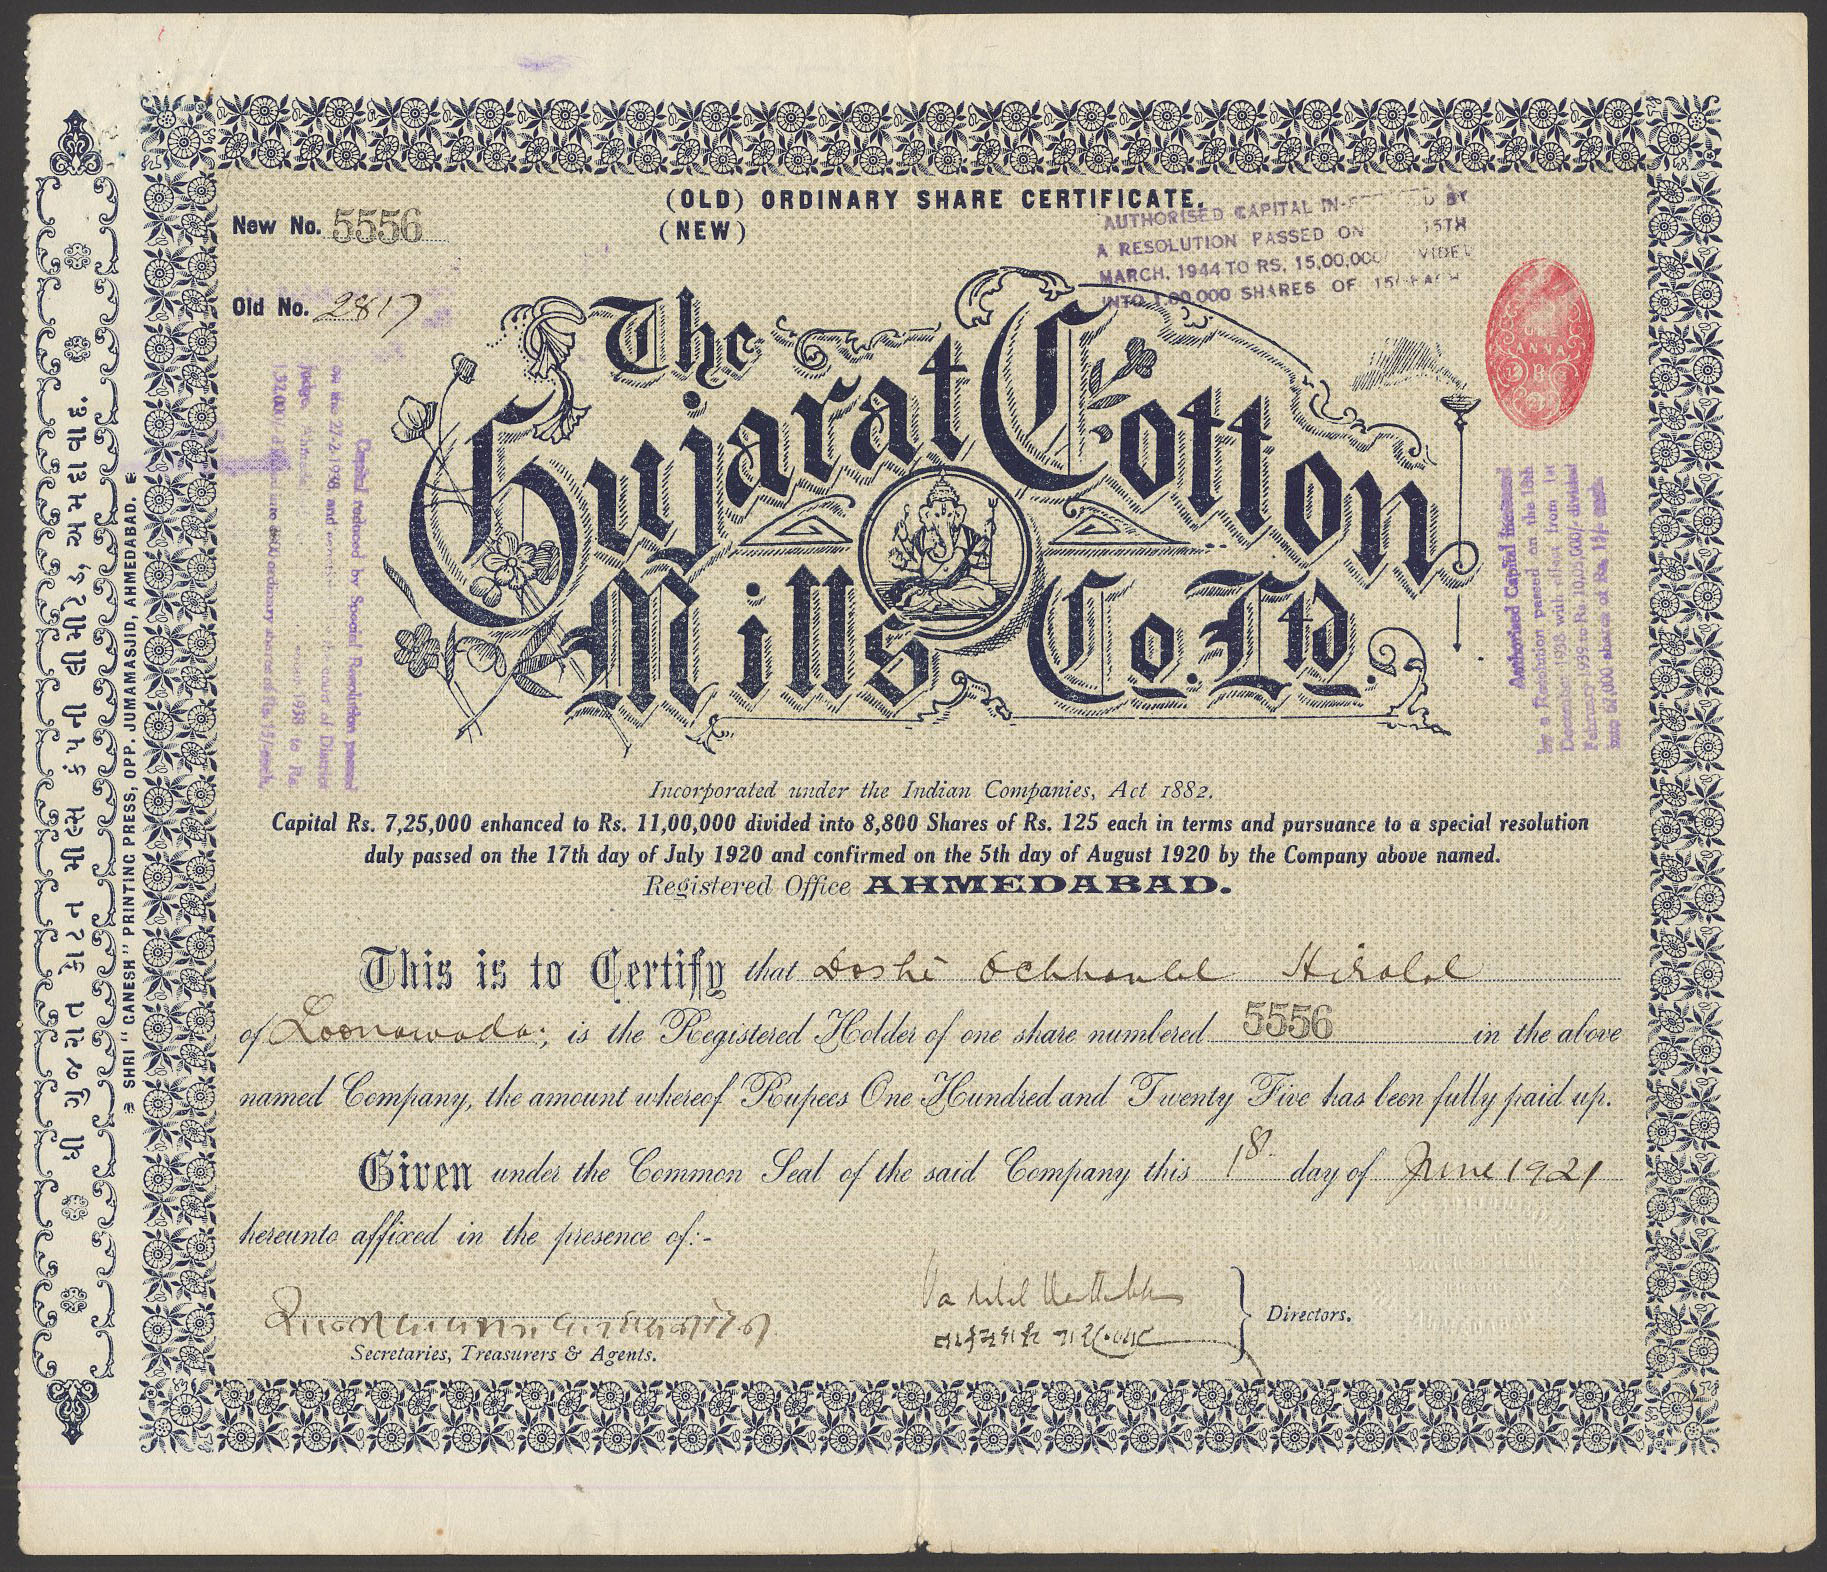 (OLD) ORDINARY SHARE CERTIFICATE.
(NEW)
New No. 5556
Old No. 2817
AUTHORISED CAPITAL BY
A RESOLUTION PASSED ON 15TH
MARCH. 1944 TO RS. 15,00,000/
INTO 1,00,000 SHARES OF
ANNA
The
Gujarat Cotton
Mills Co. Ltd.
Capital reduced by Special Resolution passed
on the 27-2-1938 and of District
Judge, 1938 to Rs.
ordinary shares of Rs. 15/- each.
Authorised Capital Increased
by a Resolution passed on the 18th
December 1938 with effect from 1st
February 1939 to Rs. 10,05,000/- divided
into 67,000 shares of Rs. 15/- each.
Incorporated under the Indian Companies, Act 1882.
Capital Rs. 7,25,000 enhanced to Rs. 11,00,000 divided into 8,800 Shares of Rs. 125 each in terms and pursuance to a special resolution
duly passed on the 17th day of July 1920 and confirmed on the 5th day of August 1920 by the Company above named.
Registered Office AHMEDABAD.
This is to Certify that Doshi Ochhavlal Hiralal
of Loonawada; is the Registered Holder of one share numbered 5556 in the above
named Company, the amount whereof Rupees One Hundred and Twenty Five has been fully paid up.
Given under the Common Seal of the said Company this 1st. day of June 1921
hereunto affixed in the presence of:-
Secretaries, Treasurers & Agents.
Directors.
ધી ગુજરાત કોટન મીલ્સ કંપની લીમીટેડ, અમદાવાદ.
SHRI "GANESH" PRINTING PRESS, OPP. JUMAMASJID, AHMEDABAD.